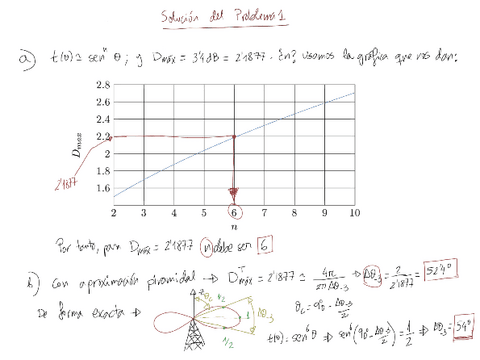 Solución del Problema 1
a) t(θ) ≃ senⁿ θ ; y Dmáx = 3'4dB = 2'1877 . ¿n? usamos la gráfica que nos dan:
2.8
2.6
2.4
2.2
2
1.8
1.6
Dmax
2'1877
2 3 4 5 6 7 8 9 10
n
Por tanto, para Dmáx = 2'1877 n debe ser 6
b) Con aproximación piramidal → Dmáx = 2'1877 ≃ 4π / 2π Δθ-3 ⇒ Δθ-3 = 2 / 2'1877 = 52'4º
De forma exacta →
z
θ
1/2
1
1/2
Δθ-3
= 90 - Δθ-3 / 2
t(θ) = sen⁶ θ ⇒ sen⁶(90 - Δθ-3 / 2) = 1/2 ⇒ Δθ-3 = 54º